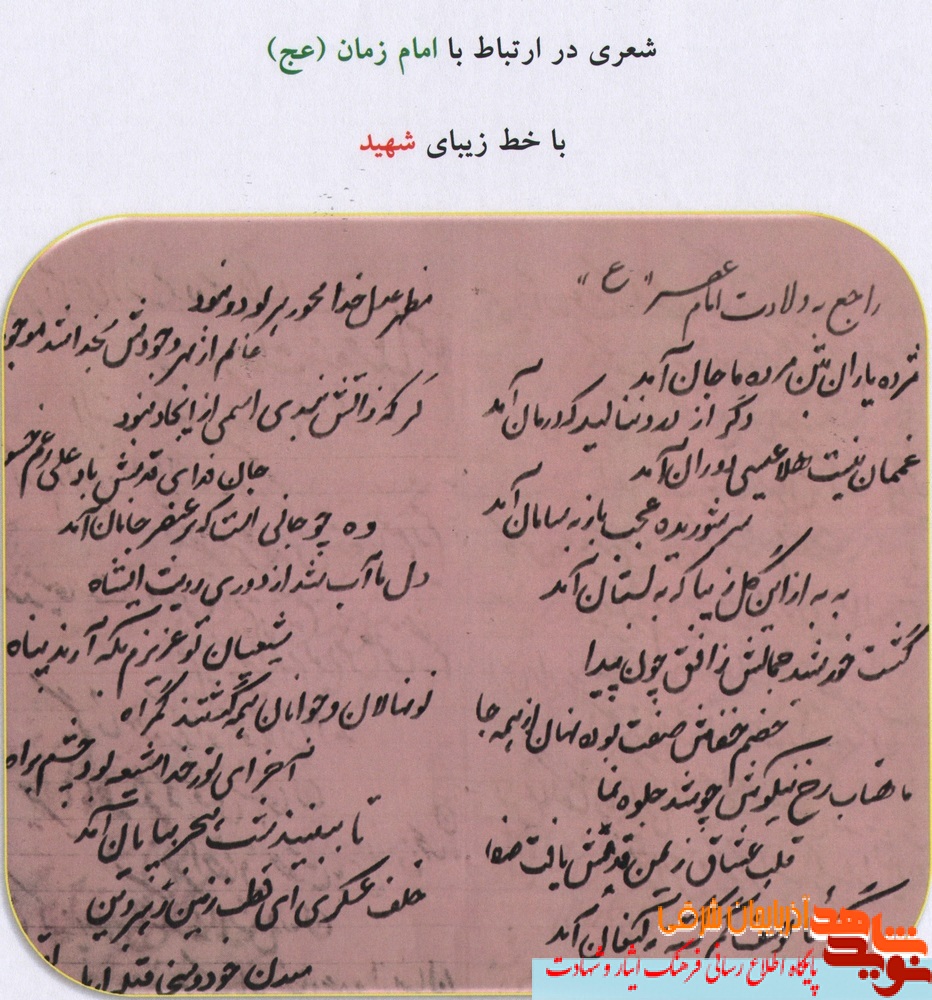 شعری در ارتباط با امام زمان (عج)
با خط زیبای شهید
راجع به ولادت امام عصر "ع"
مژده یاران بتن مرده ما جان آمد
دگر از درد ننالید که درمان آمد
غممان نیست هلا عیسی دوران آمد
سر شوریده عجب باز به سامان آمد
به به از این گل زیبا که به بستان آمد
گشت خورشید جمالش ز افق چون پیدا
خصم خفاش صفت بوده نهان از همه جا
ماهتاب رخ نیکوش چو شد جلوه نما
قلب عشاق ز یمن قدمش یافت صفا
یوسف گم گشته به کنعان آمد
مظهر عدل خدا محور هر بود و نبود
عالم از مهر وجودش بخدا شد موجود
گر که ذاتش نبدی اسمی از ایجاد نبود
جان فدای قدمش باد علی رغم حسود
وه چو جانی است که بر عنصر جانان آمد
دل ما آب شد از دوری رویت ای شاه
شیعیان تو عزیزم بکه آرند پناه
نونهالان و جوانان همه گشتند گمراه
آخر ای نور خدا شیعه بود چشم براه
تا ببینند شب هجر بپایان آمد
خلف عسکری ای قطب زمین زیب زمین
معدن جود و سخی قبله ارباب
شاهد
نوید
آذربایجان شرقی
پایگاه اطلاع رسانی فرهنگ ایثار و شهادت